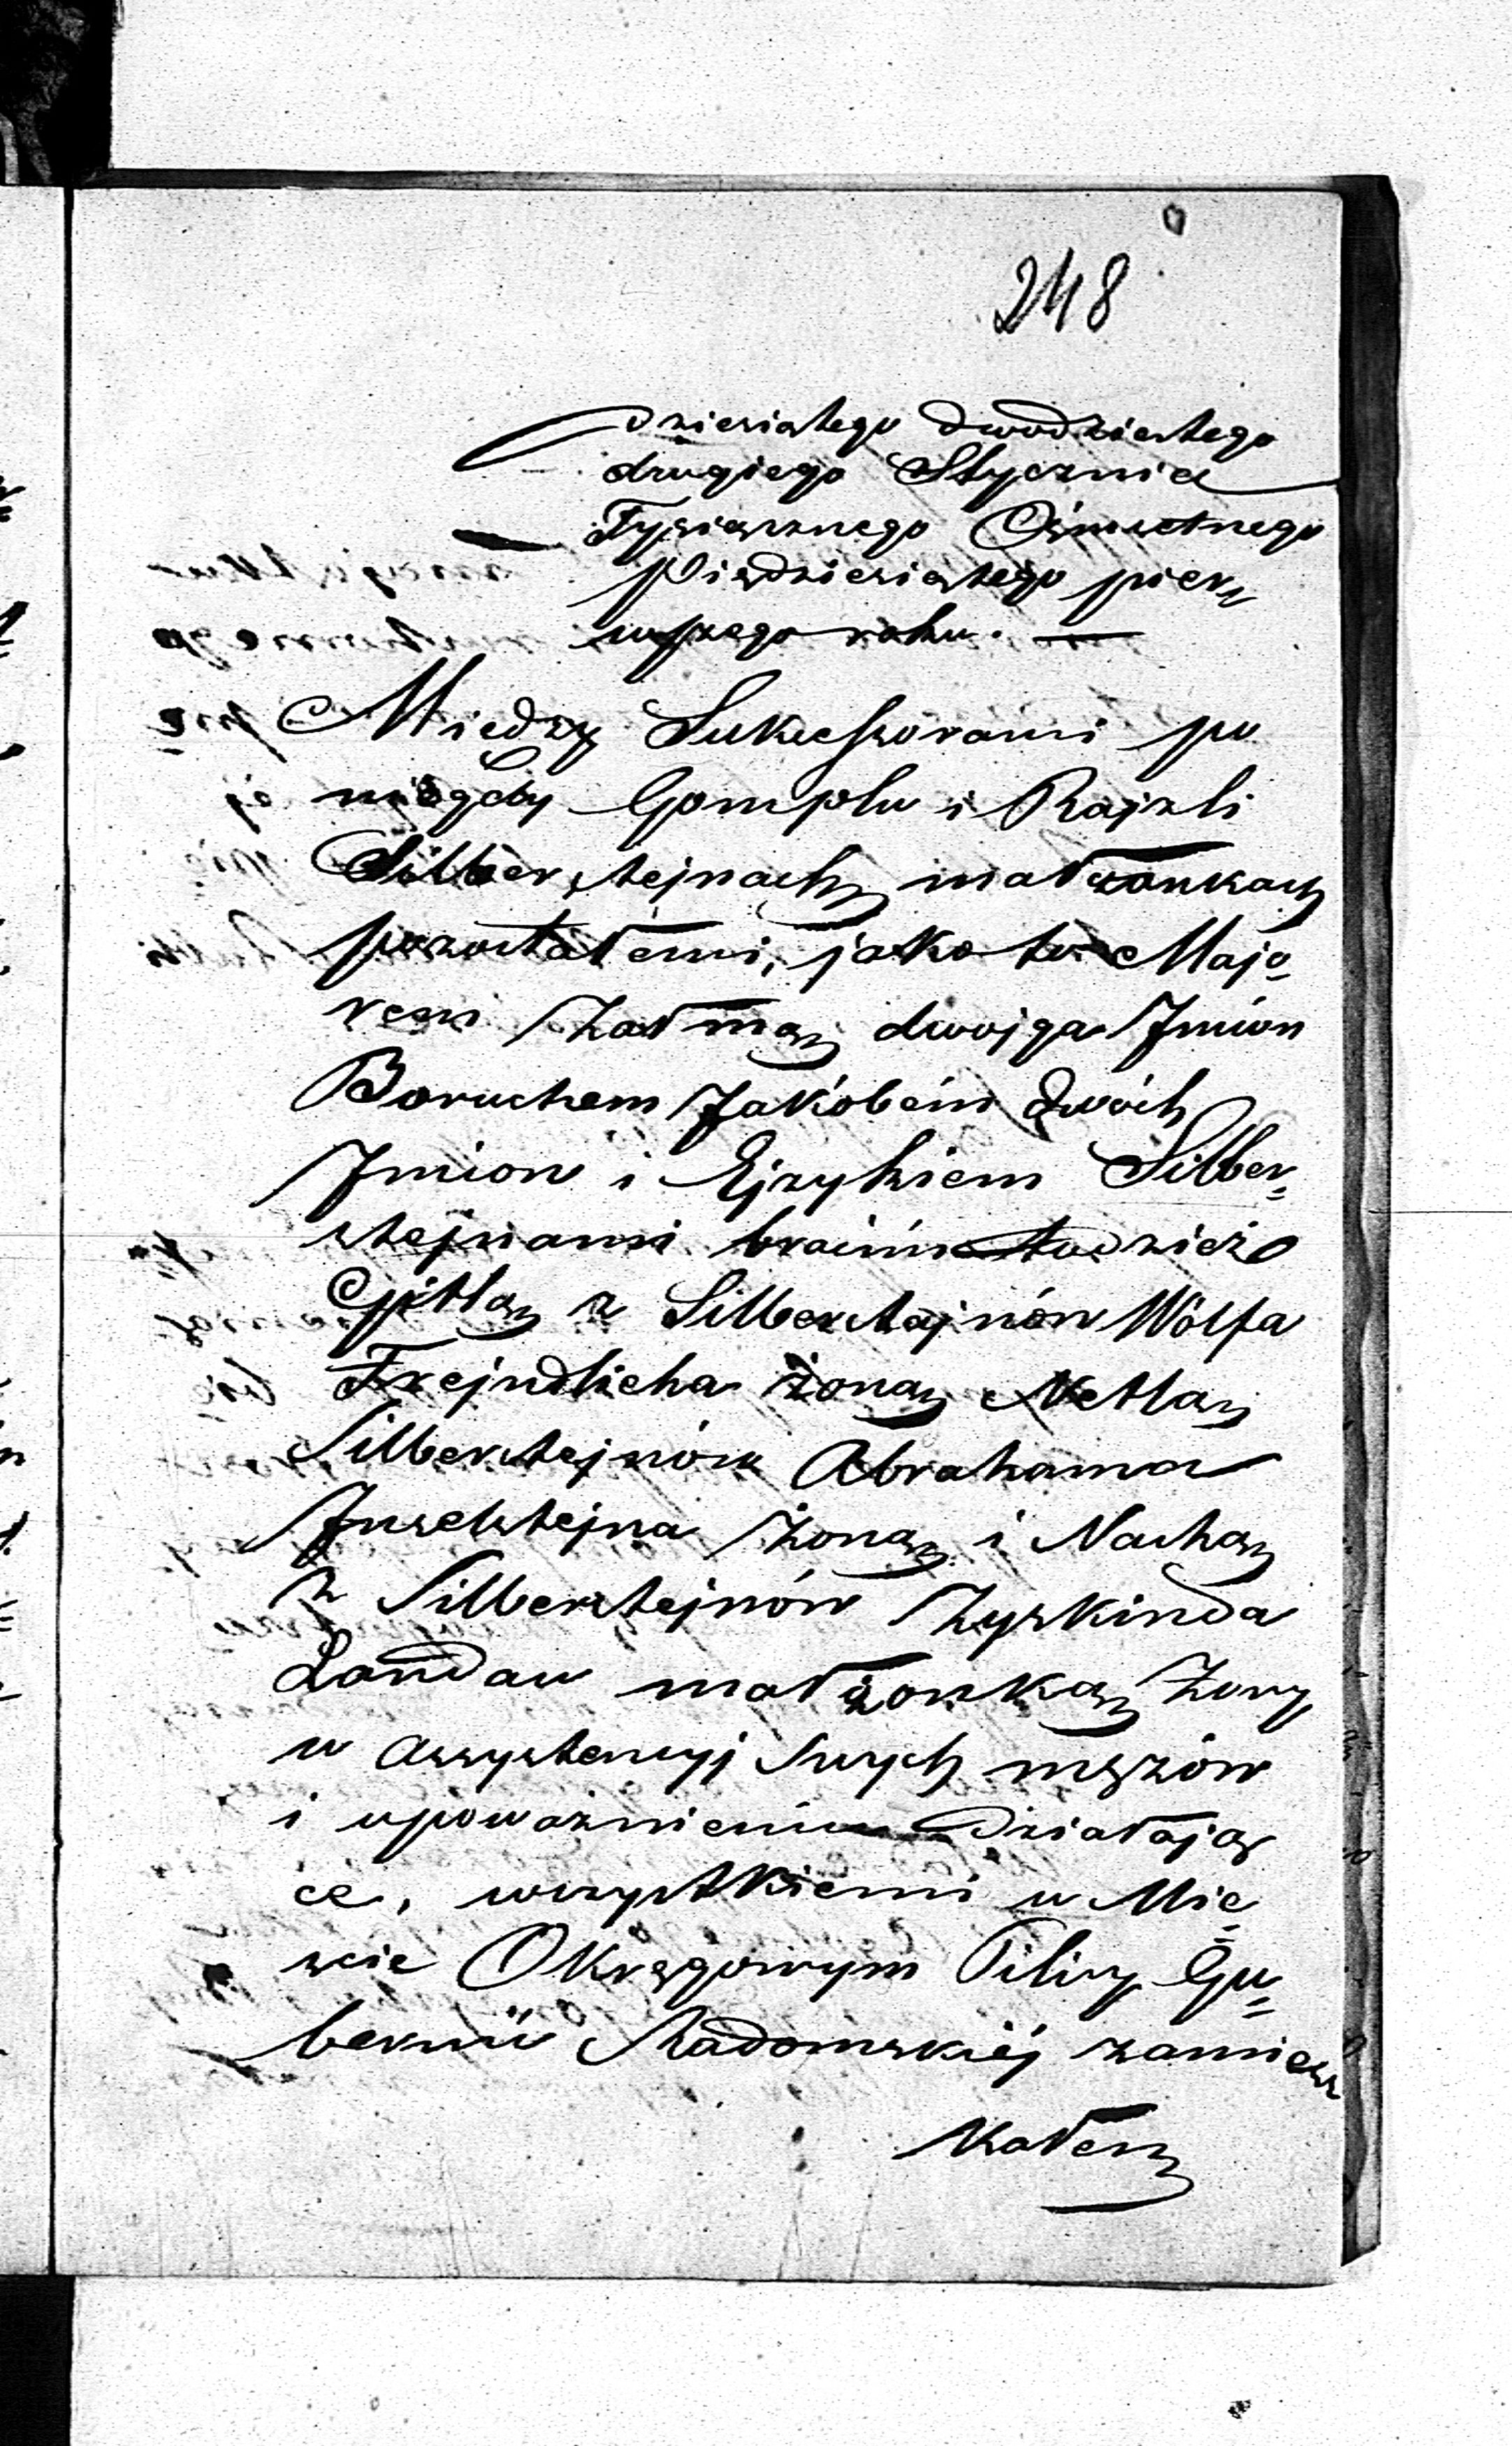 248
dziesiątego dwudziestego
drugiego Stycznia
Tysiącznego Ośmsetnego
Pięćdziesiątego pier„
wszego roku. —
Między Sukcessorami po
niegdy Gomplu i Rajzli
Silbersztejnach małżonkach
pozostałemi, jako to Majo„
rem Załmą dwojga Imion
Boruchem Jakóbem dwóch
Imion i Ejzykiem Silber„
sztejnami braćmi tudzież
Gitlą z Silbersztajnów Wólfa
Frejndlicha żoną Netlą
Silbersztejnów Abrahama
Inselsztejna żoną i Nachą
z Silbersztejnów Zyskinda
Landau małżonką żony
w assystencyj swych mężów
i upoważnieniu działają„
ce, wszystkiemi w Mie„
ście Okręgowym Pilicy Gu„
bernii Radomskiéj zamiesz
kałem